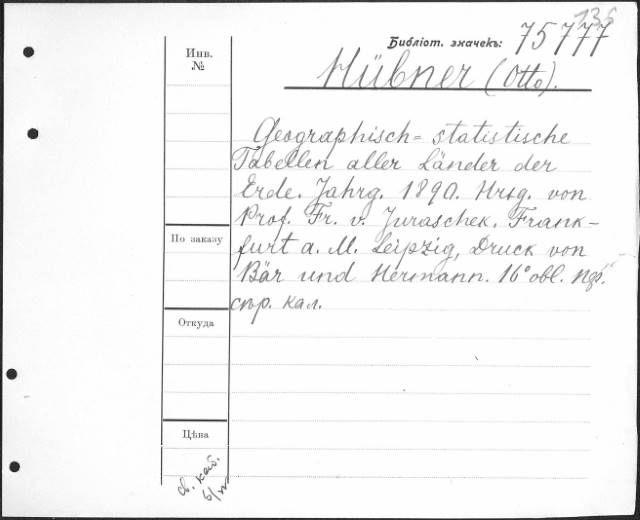 135
Библіот. значекъ: 75777
Инв.
№
Hübner (Otto).
Geographisch= statistische
Tabellen aller Länder der
Erde. Jahrg. 1890. Hrsg. von
Prof. Fr. v. Juraschek. Frank-
furt a. M. Leipzig, Druck von
Bär und Hermann. 16° obl.
По заказу
кал.
Откуда
Цѣна
каб.